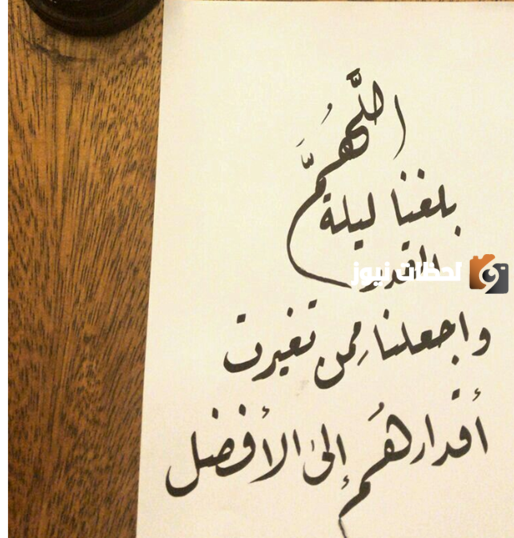 اللَّهُمَّ
بلغنا ليلة
القدر
لحظات نيوز
واجعلنا مِمن تغيرت
أقدارهُم إلى الأفضل